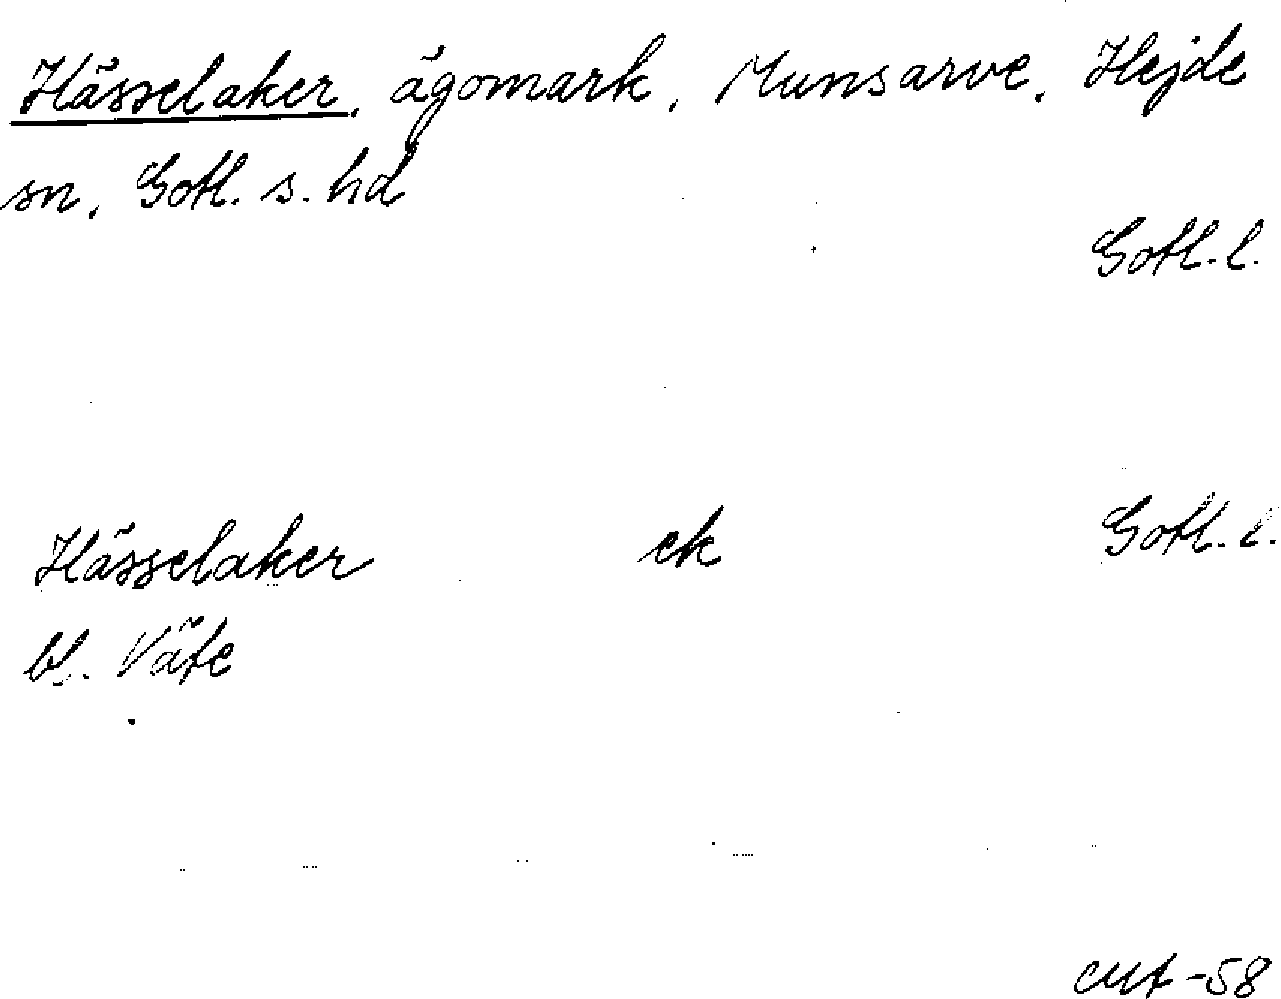 Hässelaker, ägomark, Munsarve, Hejde
sn, Gotl. s. hd
Gotl. l.
Hässelaker ek Gotl. l.
bl. Väte
-58